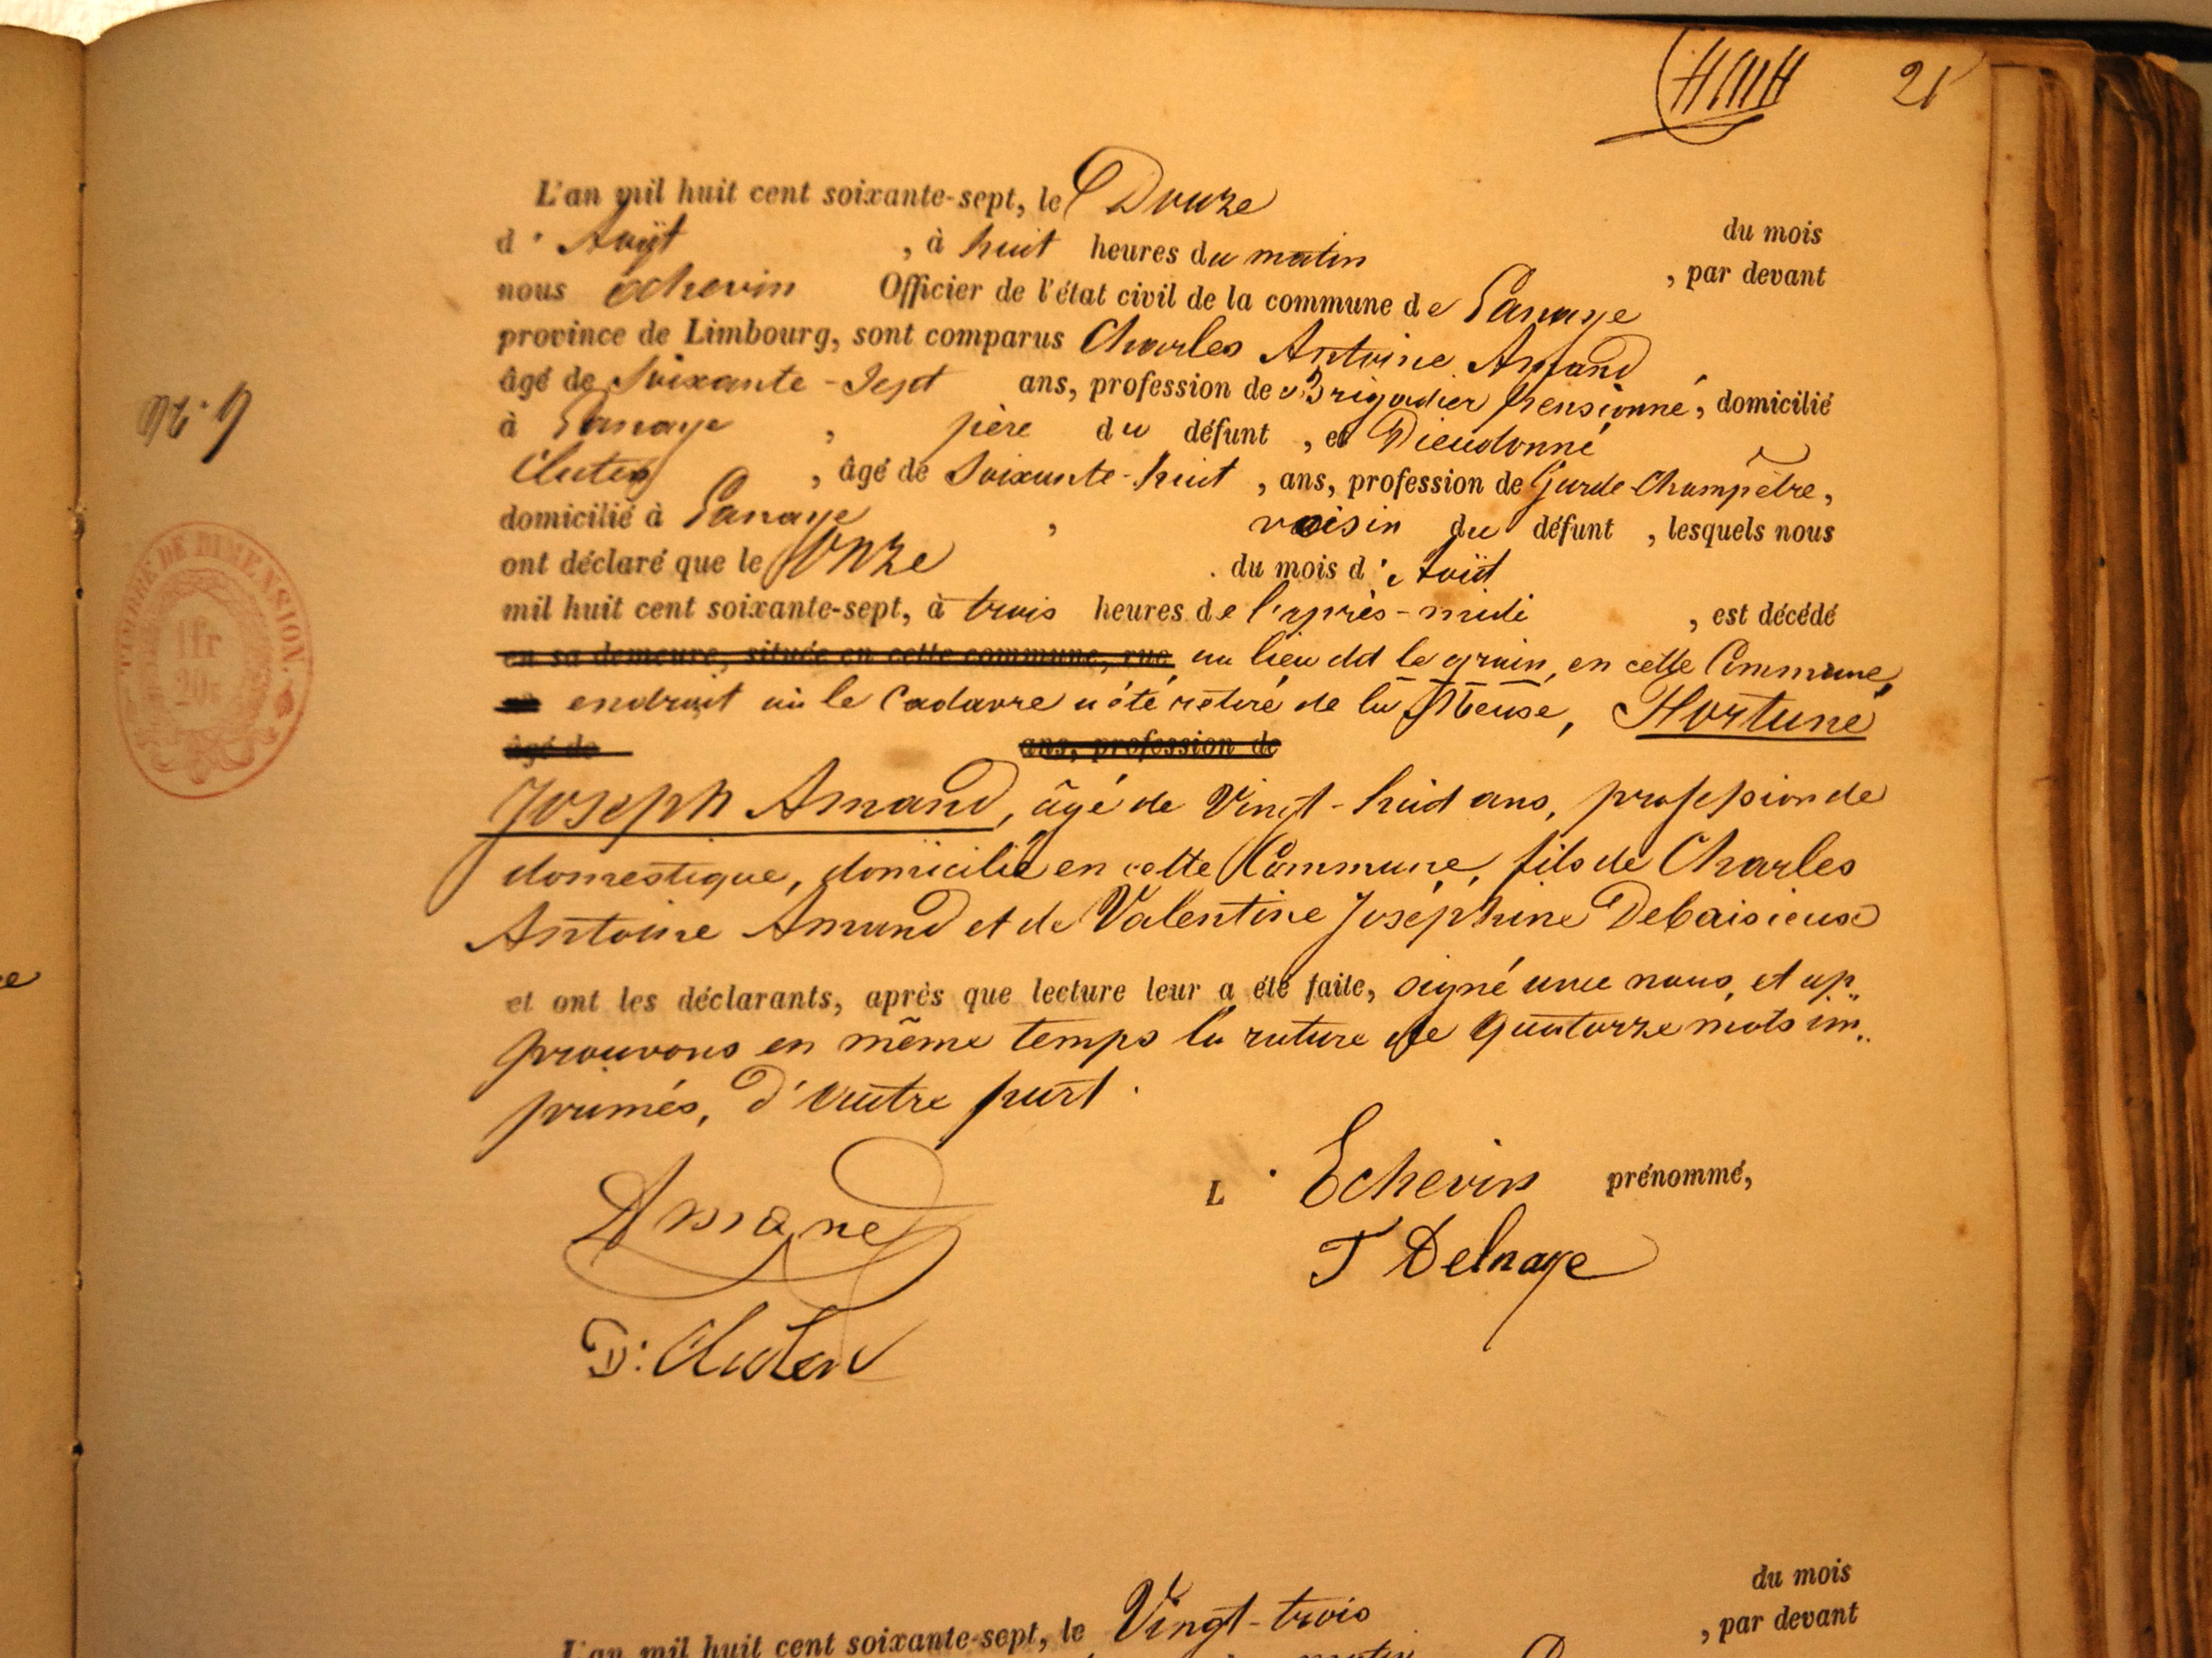 21
L'an mil huit cent soixante-sept, le Douze du mois
d'Août, à huit heures du matin, par devant
nous échevin Officier de l'état civil de la commune de Lanaye
province de Limbourg, sont comparus Charles Antoine Amand
âgé de Soixante-Sept ans, profession de Brigadier pensionné, domicilié
à Lanaye, père du défunt, et Dieudonné
Cluten, âgé de Soixante-huit, ans, profession de Garde-Champêtre,
domicilié à Lanaye, voisin du défunt, lesquels nous
ont déclaré que le Onze du mois d'Août
mil huit cent soixante-sept, à trois heures de l'après-midi, est décédé
en sa demeure, située en cette commune, rue au lieu dit le grain, en cette Commune,
endroit où le Cadavre a été retiré de la Meuse, Hortuné
âgé de ans, profession de
Joseph Amand, âgé de Vingt-huit ans, profession de
domestique, domicilié en cette Commune, fils de Charles
Antoine Amand et de Valentine Joséphine Debaisieux
et ont les déclarants, après que lecture leur a été faite, signé avec nous, et ap-
prouvons en même temps la rature de quatorze mots im-
primés, d'autre part.
N° 9
TIMBRE DE DIMENSION.
1fr
20c
L'Echevin prénommé,
Amand
T Delnaye
D: Cluten
L'an mil huit cent soixante-sept, le Vingt-trois du mois
matin, par devant